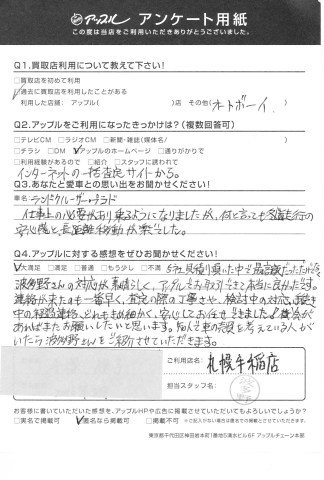 アップル アンケート用紙
この度は当店をご利用いただきありがとうございました。
Q1.買取店利用について教えて下さい!
□買取店を初めて利用
☑過去に買取店を利用したことがある
利用した店舗: アップル( )店 その他(オートボーイ.)
Q2.アップルをご利用になったきっかけは?(複数回答可)
□テレビCM □ラジオCM □新聞・雑誌(媒体名/ )
□チラシ □DM ☑アップルのホームページ □通りがかりで
□利用経験があるので □紹介 □スタッフに誘われて
インターネットの一括査定サイトから。
Q3.あなたと愛車との思い出をお聞かせください!
車名/ランドクルーザープラド
仕事上の必要があり乗るようになりましたが、何と言っても冬道走行の
安心感と長距離移動が楽でした。
Q4.アップルに対する感想をぜひお聞かせください!
☑大満足 □満足 □普通 □もう少し □不満 5社見積り頂いた中で最高額だったことから
波多野さんの対応が素晴らしく、アップルとお取引できて本当に良かったです。
連絡が来たのも一番早く、査定の際の丁寧さや、検討中の対応、手続き
中の経過連絡、どれもきめ細かく、安心してお任せできました。機会が
あればまたお願いしたいと思います。知人で車の売却を考えている人が
いたら波多野さんをご紹介させていただきます。
ご利用店名: 札幌手稲店
担当スタッフ名:
お客様に書いていただいた感想を、アップルHPや広告に掲載させていただいてもよろしいでしょうか?
□実名で掲載可 ☑匿名なら掲載可 □掲載不可 ※ご記入がない場合は匿名での掲載とさせていただきます。
東京都千代田区神田岩本町1番地5清水ビル6F アップルチェーン本部